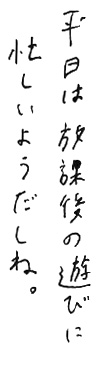 平日は放課後の遊びに
忙しいようだしね。